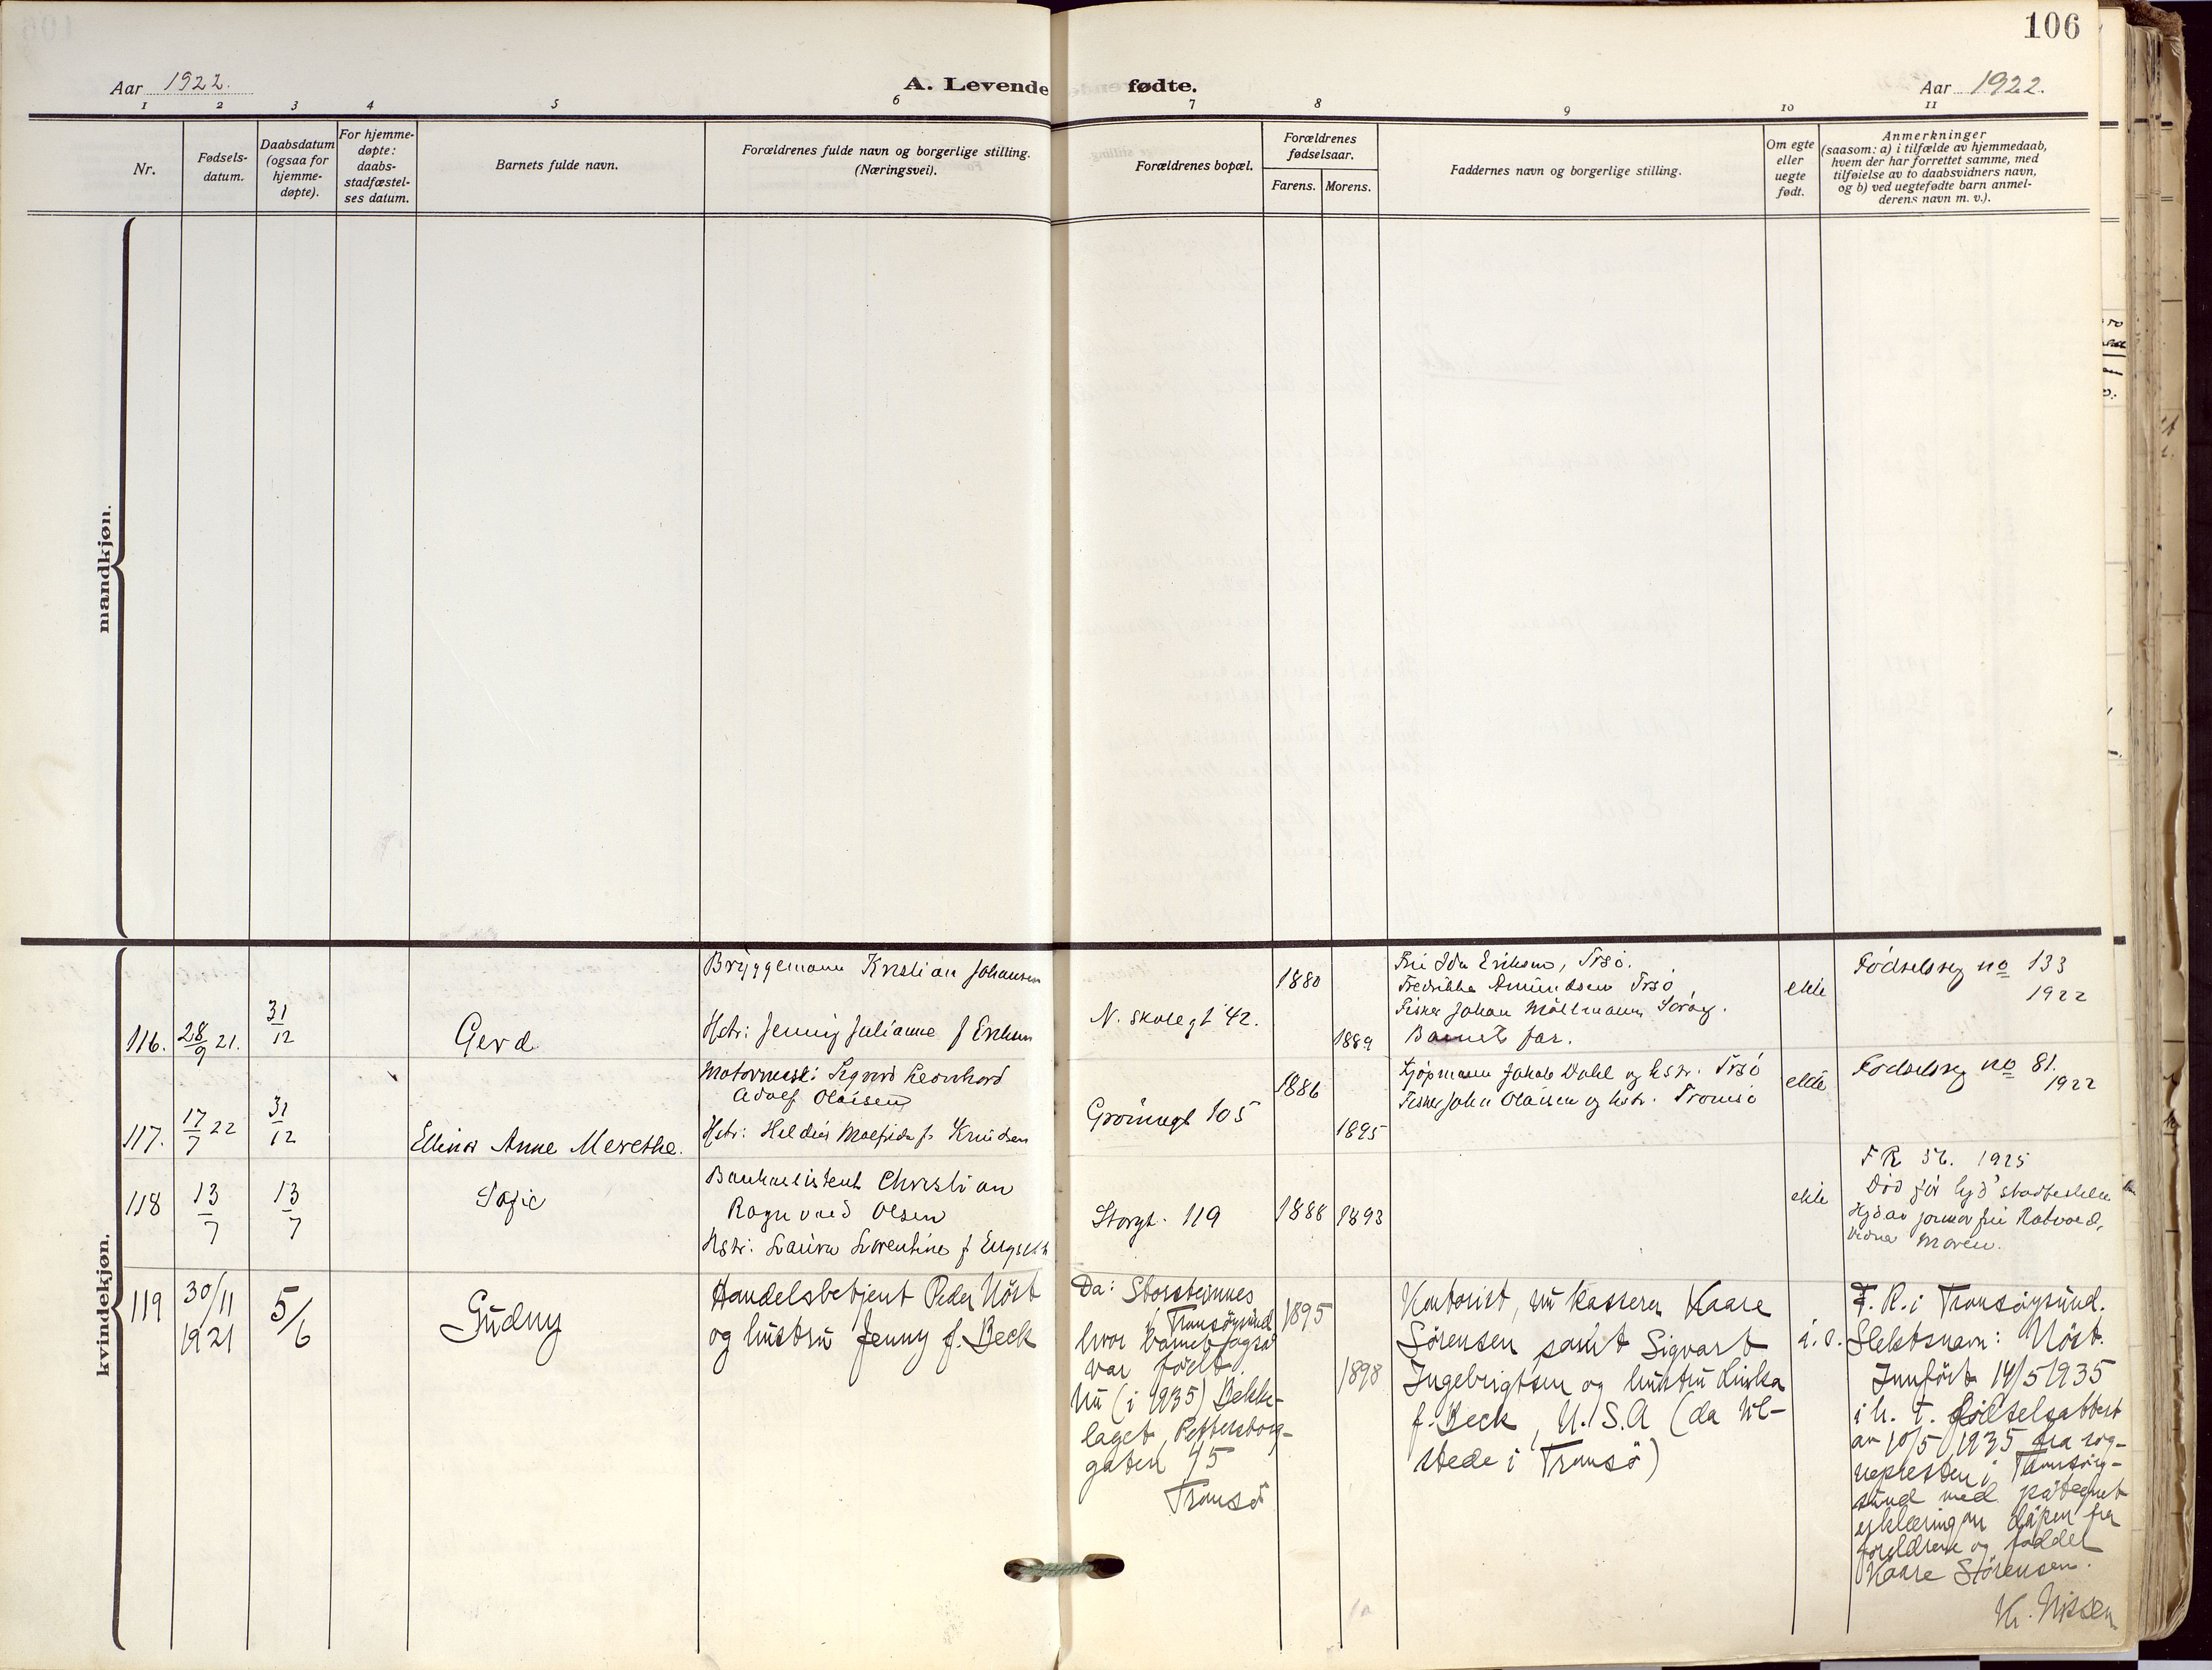 106
Aar 1922.
A. Levende fødte.
Aar 1922.
1 2 3 4 5 6 7 8 9 10 11
Nr.
Fødsels-
datum.
Daabsdatum
(ogsaa for
hjemme-
døpte).
For hjemme-
døpte:
daabs-
stadfæstel-
ses datum.
Barnets fulde navn.
Forældrenes fulde navn og borgerlige stilling.
(Næringsvei).
Forældrenes bopæl.
Forældrenes
fødselsaar.
Farens. Morens.
Faddernes navn og borgerlige stilling.
Om egte
eller
uegte
født.
Anmerkninger
(saasom: a) i tilfælde av hjemmedaab,
hvem der har forrettet samme, med
tilføielse av to daabsvidners navn,
og b) ved uegtefødte barn anmel-
derens navn m. v.).
mandkjøn.
kvindekjøn.
116. 28/9 21. 31/12
Gerd
Bryggemann Kristian Johansen
Hstr: Jenny Julianne f Eriksen
N. skolegt 42.
1880
1889
Frk Ida Eriksen, Trsö.
Fredrikke Amundsen Trsö
Fisker Johan Möllmann
Barnets far.
ekte
Födselsreg no 133
1922
117. 17/7 22 31/12
Ellinor Anne Merethe.
Sigurd Leonhard
Adolf Olaisen
Hstr: Molfrida f. Knudsen
Grönnegt 105
1886
1895
Kjöpmann Jakob Dahl og hstr. Trsö
Fisker John Olaisen og hstr. Tromsö
ekte
Födselsreg no 81.
1922
118 13/7 13/7
Sofie
Bankassistent Christian
Ragnvald Olsen
Hstr: Laura Lorentine f Engseth
Storgt. 119
1888 1893
ekte
F R 56. 1925
Död för hjd stadfestelse
Hjd av
Moren.
119 30/11 1921 5/6
Gudny
Handelsbetjent Peder Höst
og hustru Jenny f. Beck
Da: Storsteinnes
i Tromsöysund
hvor barnet også
var födt.
Nu (i 1935) Bekke-
laget, Pettersborg-
gaten 45
Tromsö
1895
1898
Kontorist, nu kasserer Kaare
Sörensen samt Sigvart
Ingebrigtsen og hustru
f. Beck, U.S.A (da til-
stede i Tromsö)
F. R. i Tromsöysund.
Slektsnavn: Höst.
Innfört 14/5 1935
i h. t. födselsattest
av 10/5 1935 fra sog-
nepresten i Tromsöy-
sund med påtegnet
erklæring om dåpen fra
foreldrene og fadder
Kaare Sörensen.
Kr. Nissen